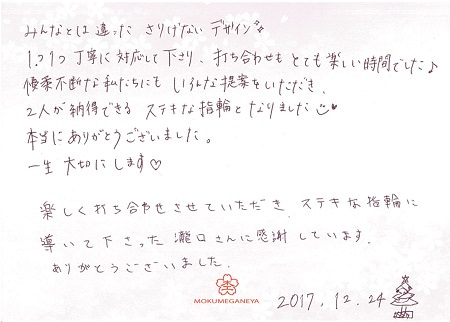 みんなとは違った さりげない デザイン✨
1つ1つ丁寧に対応して下さり、打ち合わせも とても楽しい時間でした♪
優柔不断な私たちにも いろんな提案をいただき、
2人が納得できる ステキな指輪となりました☺♥
本当にありがとうございました。
一生 大切にします♡
楽しく打ち合わせさせていただき、ステキな指輪に
導いて下さった 瀧口さんに感謝しています。
ありがとうございました。
MOKUMEGANEYA
2017.12.24